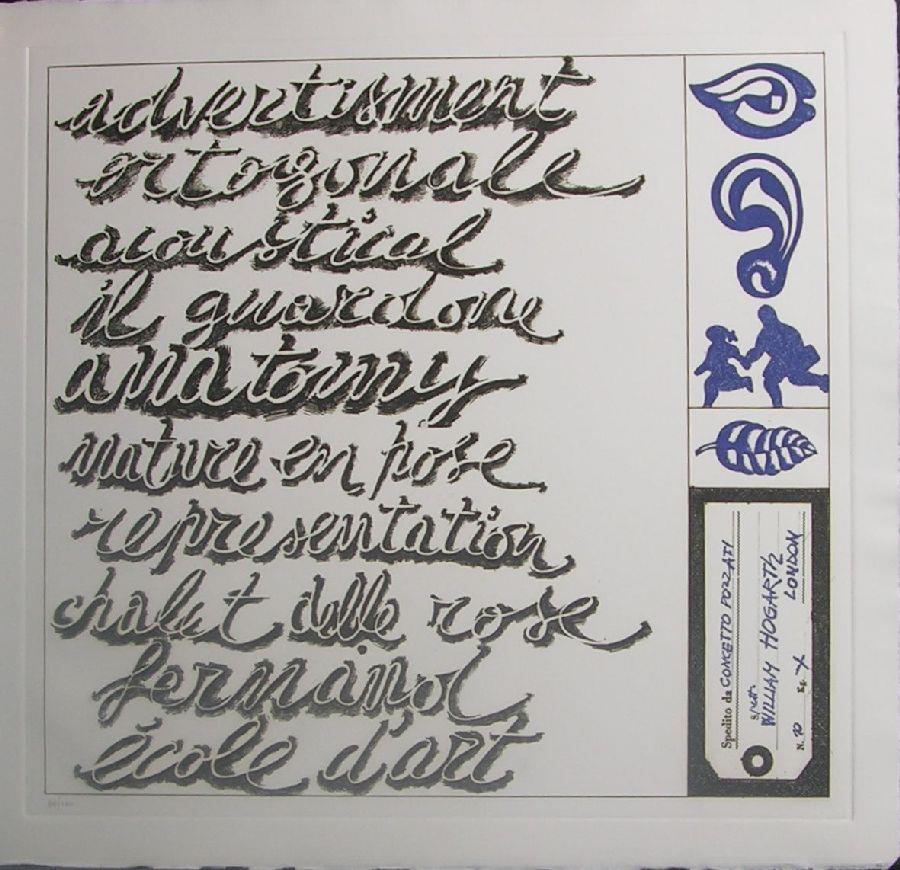 advertisment
ortogonale
acoustical
il guardone
anatomy
nature en pose
representation
chalet delle rose
fermand
école d'art
Spedito da CONCETTO POZZATI
WILLIAM HOGARTH
LONDON
N. 10 Kg. X